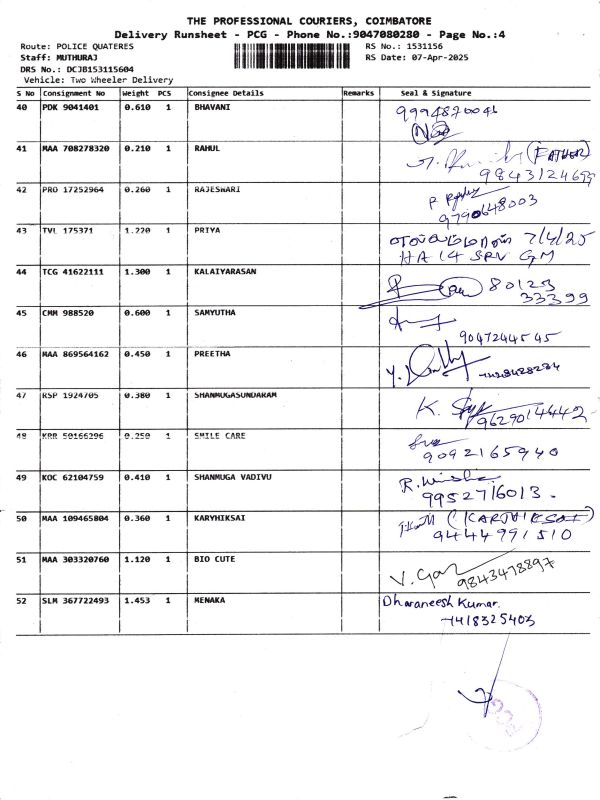 THE PROFESSIONAL COURIERS, COIMBATORE
Delivery Runsheet - PCG - Phone No.:9047080280 - Page No.:4
Route: POLICE QUATERES
RS No.: 1531156
Staff: MUTHURAJ
RS Date: 07-Apr-2025
DRS No.: DCJB153115604
Vehicle: Two Wheeler Delivery
S No Consignment No Weight PCS Consignee Details Remarks Seal & Signature
40 PDK 9041401 0.610 1 BHAVANI
41 MAA 708278320 0.210 1 RAHUL
(FATHER)
42 PRO 17252964 0.260 1 RAJESWARI
9790648003
43 TVL 175371 1.220 1 PRIYA
7/4/25
HA 14 SRV GM
44 TCG 41622111 1.300 1 KALAIYARASAN
80123
33399
45 CMM 988520 0.600 1 SAMYUTHA
9047244545
46 MAA 869564162 0.450 1 PREETHA
47 RSP 1924705 0.380 1 SHANMUGASUNDARAM
9629014442
48 KRR 50166296 0.250 1 SMILE CARE
9092165940
49 KOC 62104759 0.410 1 SHANMUGA VADIVU
9952716013.
50 MAA 109465804 0.360 1 KARYHIKSAI
(KARTHIKSAI)
9444991510
51 MAA 303320760 1.120 1 BIO CUTE
9843478897
52 SLM 367722493 1.453 1 MENAKA
Dharaneesh Kumar.
7418325403